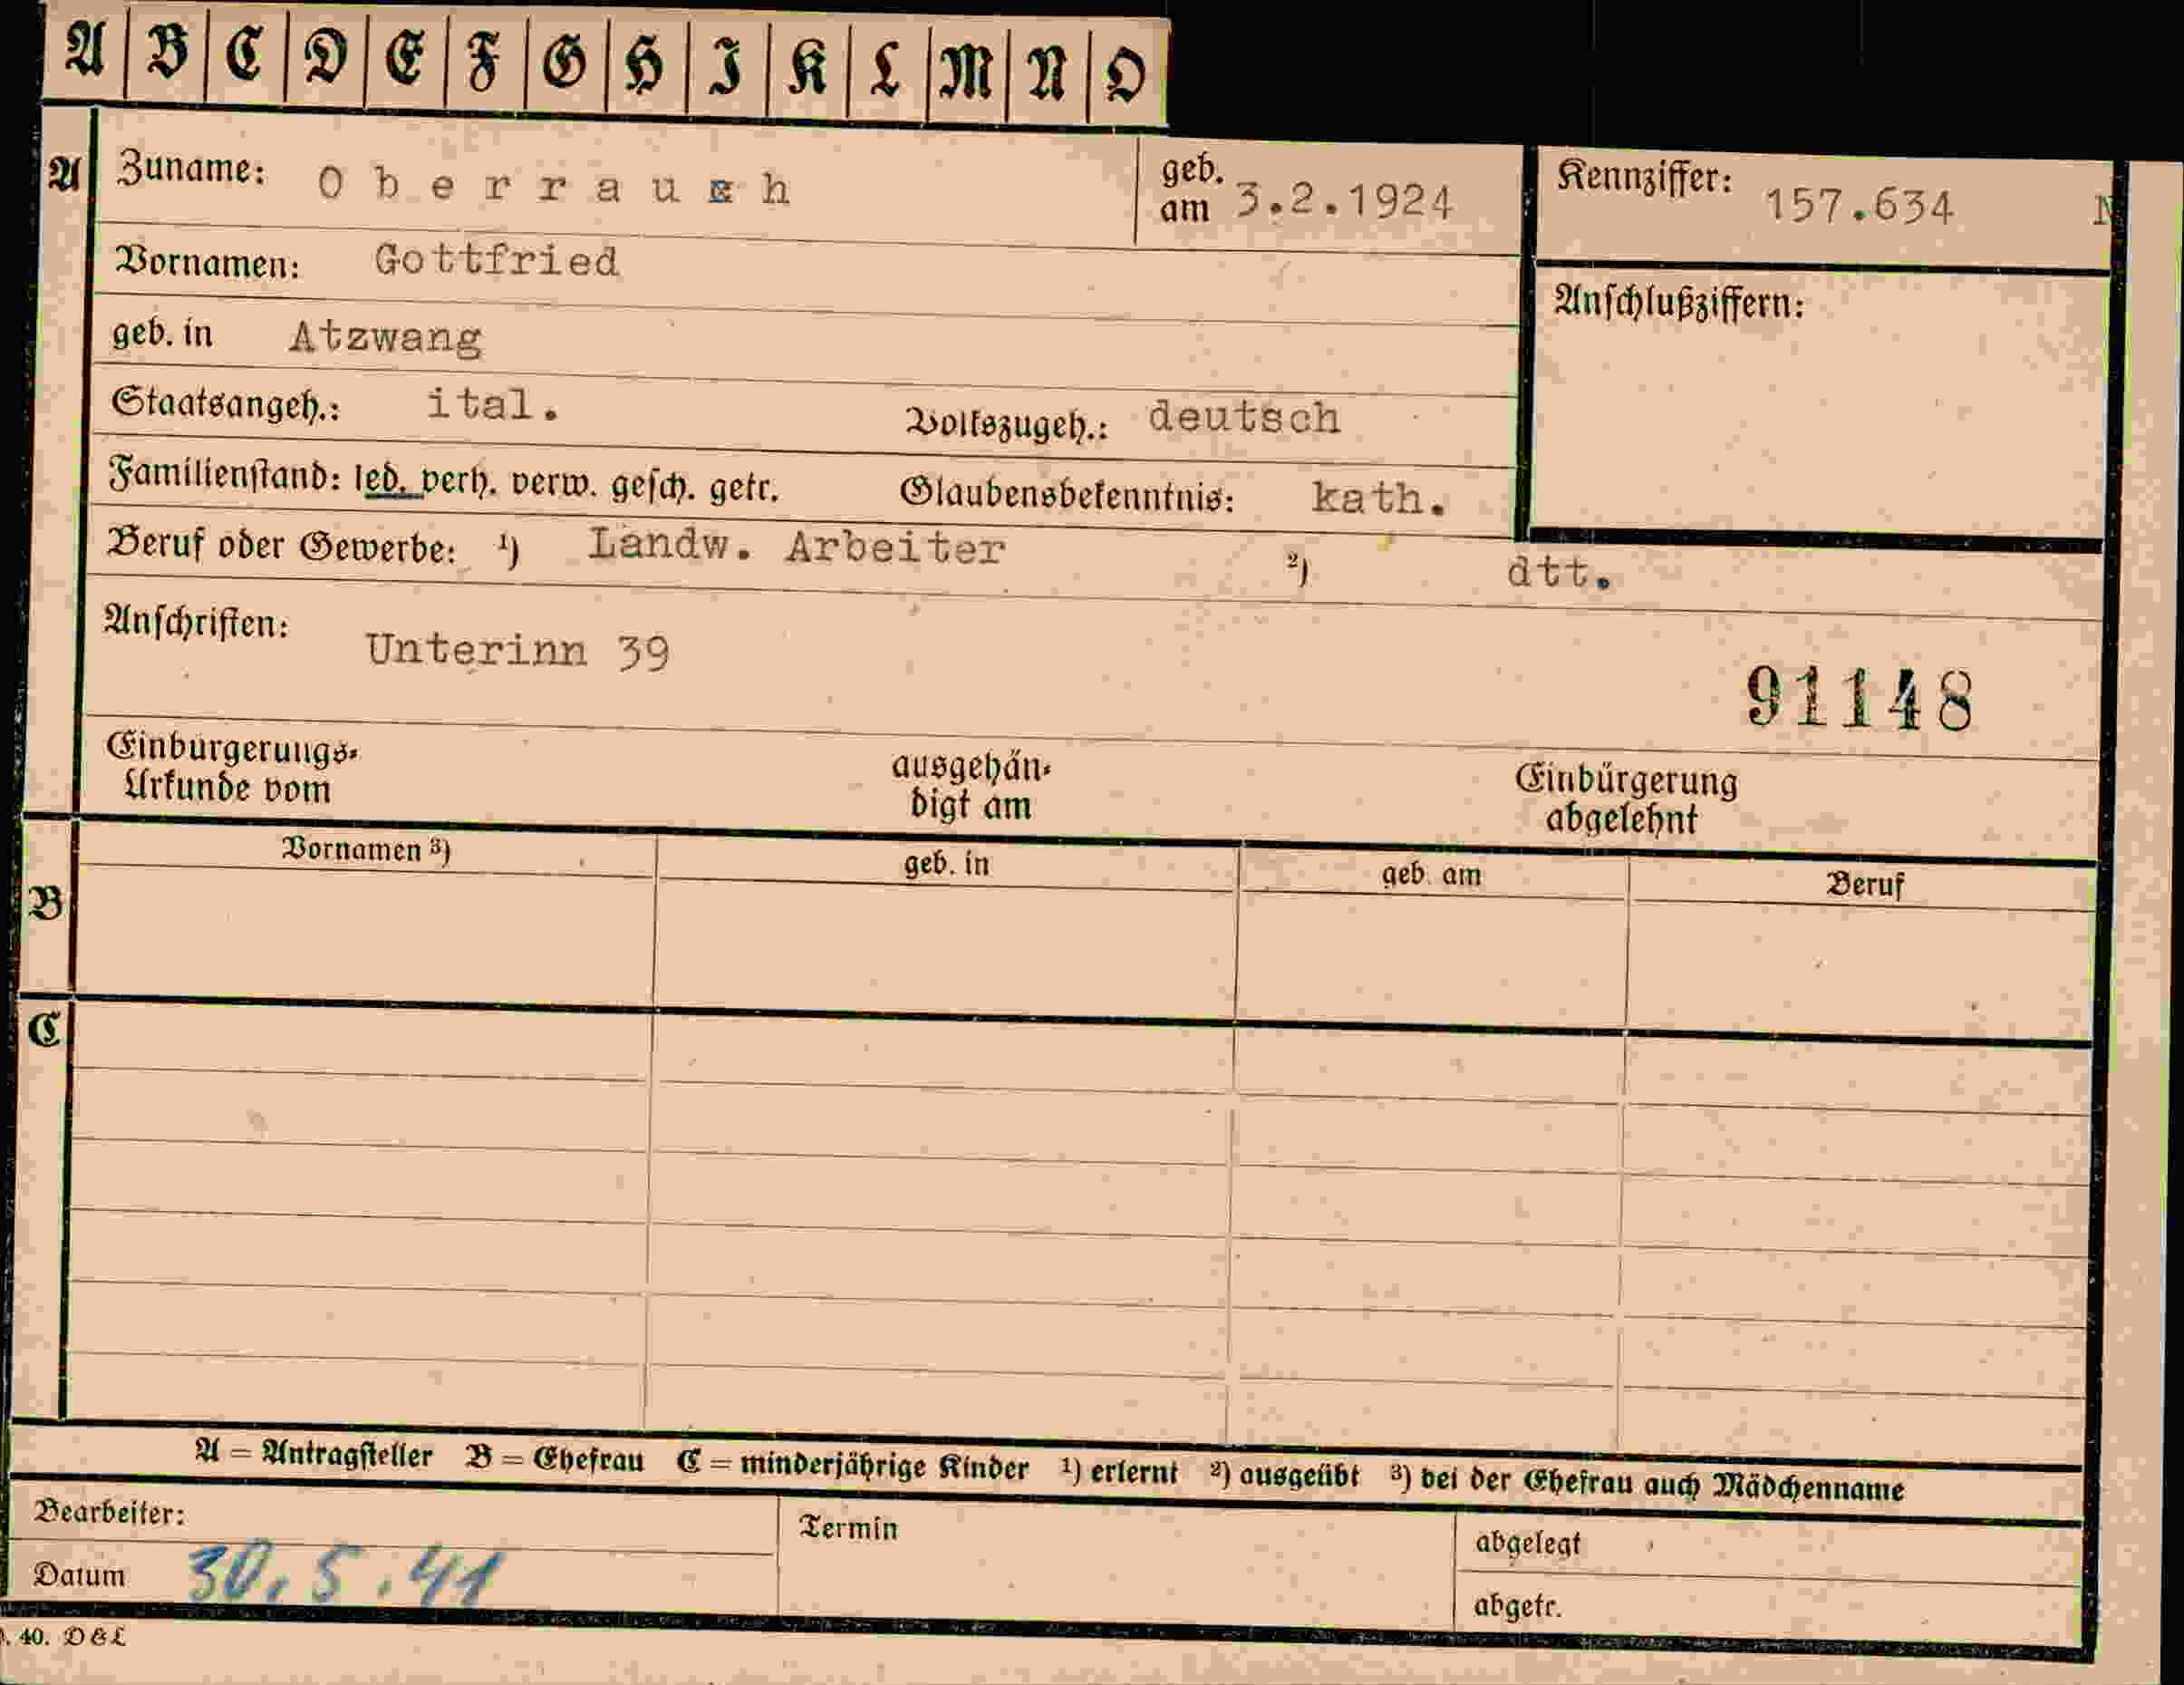 A B C D E F G H I K L M N O
A Zuname: Oberrauch geb. am 3.2.1924 Kennziffer: 157.634
Vornamen: Gottfried
Anschlußziffern:
geb. in Atzwang
Staatsangeh.: ital. Volkszugeh.: deutsch
Familienstand: led. verh. verw. gesch. getr. Glaubensbekenntnis: kath.
Beruf oder Gewerbe: ¹) Landw. Arbeiter ²) dtt.
Anschriften: Unterinn 39
91148
Einbürgerungs-
Urkunde vom
ausgehän-
digt am
Einbürgerung
abgelehnt
Vornamen ³) geb. in geb. am Beruf
B
C
A = Antragsteller B = Ehefrau C = minderjährige Kinder ¹) erlernt ²) ausgeübt ³) bei der Ehefrau auch Mädchenname
Bearbeiter:
Termin
abgelegt
Datum 30.5.41
abgetr.
40. D&L